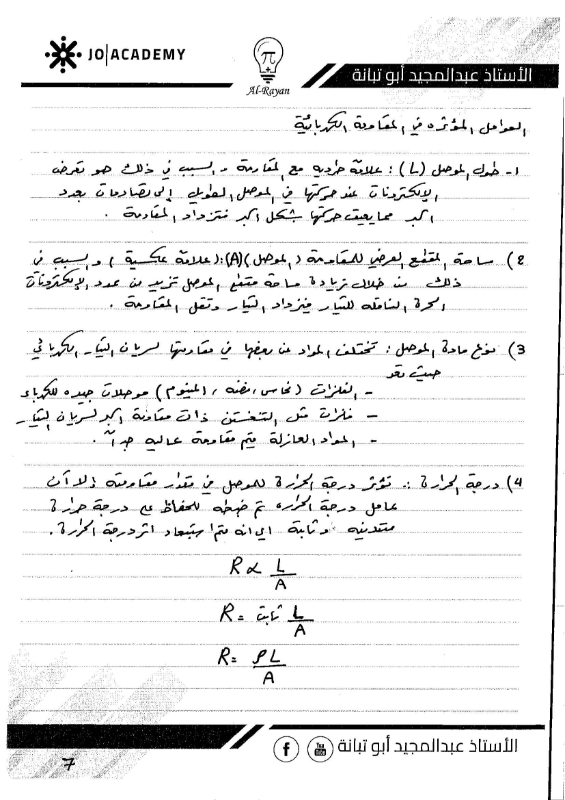 JO|ACADEMY
π
Al-Rayan
الأستاذ عبدالمجيد أبو تبانة
العوامل المؤثره في المقاومة الكهربائية
1- طول الموصل (L) : علاقة طرديه مع المقاومة والسبب في ذلك هو تعرض
الإلكترونات عند حركتها في الموصل الطويل إلى تصادمات بعدد
أكبر مما يعيق حركتها بشكل أكبر فتزداد المقاومة .
2) مساحة المقطع العرضي للمقاومة (الموصل) (A) : (علاقة عكسية) والسبب في
ذلك من خلال زيادة مساحة مقطع الموصل تزيد من عدد الإلكترونات
الحرة الناقله للتيار فيزداد التيار وتقل المقاومة .
3) نوع مادة الموصل : تختلف المواد عن بعضها في مقاومتها لسريان التيار الكهربائي
حيث
- الفلزات (نحاس، فضه، المنيوم) موصلات جيده للكهرباء
- فلزات مثل التنغستن ذات مقاومة أكبر لسريان التيار
- المواد العازلة مقاومة عاليه جداً .
4) درجة الحرارة : تؤثر درجة الحرارة للموصل في مقدار مقاومته إلا أن
عامل درجة الحراره تم ضبطه للحفاظ على درجة حرارة
متدنيه وثابتة اي انه تم استبعاد اثر درجة الحرارة .
R ∝ L/A
R = ثابت L/A
R = ρL/A
f You Tube الأستاذ عبدالمجيد أبو تبانة
7